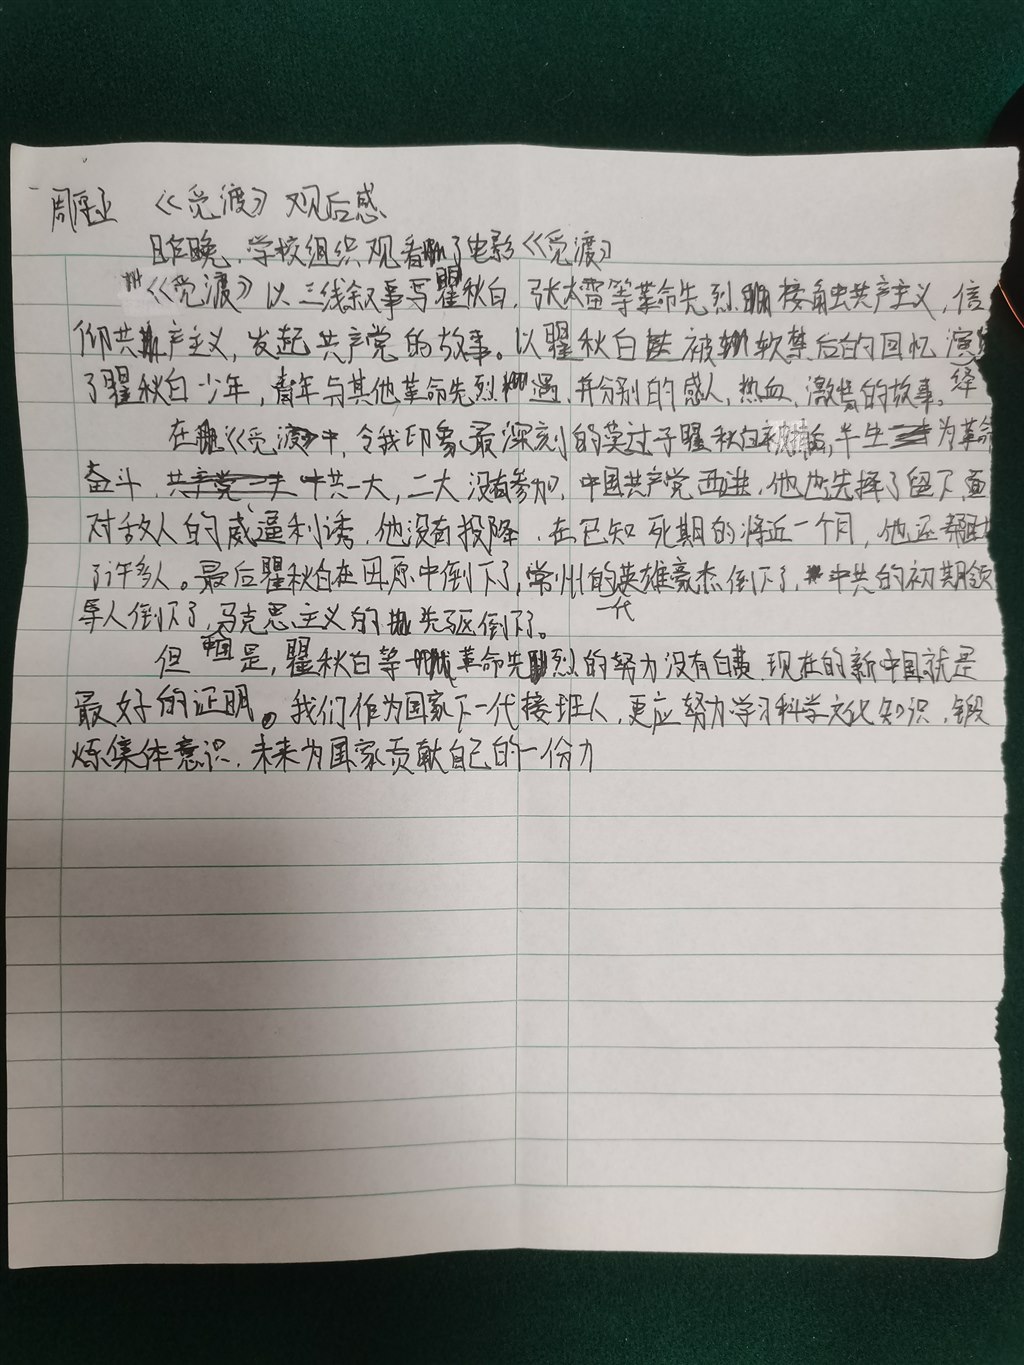 《觅渡》观后感
昨晚，学校组织观看了电影《觅渡》
《觅渡》以三线叙事写瞿秋白，张太雷等革命先烈接触共产主义，信
仰共产主义，发起共产党的故事。以瞿秋白被软禁后的回忆演
了瞿秋白少年，青年与其他革命先烈相遇，并分别的感人，热血，激情的故事。绎
在《觅渡》中，令我印象最深刻的莫过于瞿秋白被捕后，半生为革命
奋斗，中共一大，二大没有参加，中国共产党西进，他也选择了留下，面
对敌人的威逼利诱，他没有投降，在已知死期的将近一个月，他还帮助
了许多人。最后瞿秋白在田原中倒下了，常州的英雄豪杰倒下了，中共的初期领
导人倒下了，马克思主义的一代先驱倒下了。
但是，瞿秋白等革命先烈的努力没有白费，现在的新中国就是
最好的证明。我们作为国家下一代接班人，更应努力学习科学文化知识，锻
炼集体意识，未来为国家贡献自己的一份力